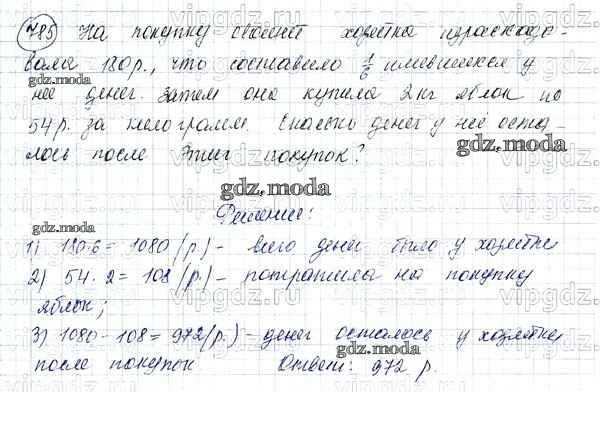 785 На покупку овощей хозяйка израсходо-
вала 180р., что составило 1/6 имевшихся у
gdz.moda
неё денег. Затем она купила 2 кг яблок по
54 р. за килограмм. Сколько денег у неё оста-
gdz.moda
лось после этих покупок?
gdz.moda
Решение:
gdz.moda
1) 180·6 = 1080 (р.) - всего денег было у хозяйки
2) 54·2 = 108 (р.) - потратила на покупку
яблок;
3) 1080-108 = 972 (р.) - денег осталось у хозяйки
gdz.moda
после покупок Ответ: 972 р.